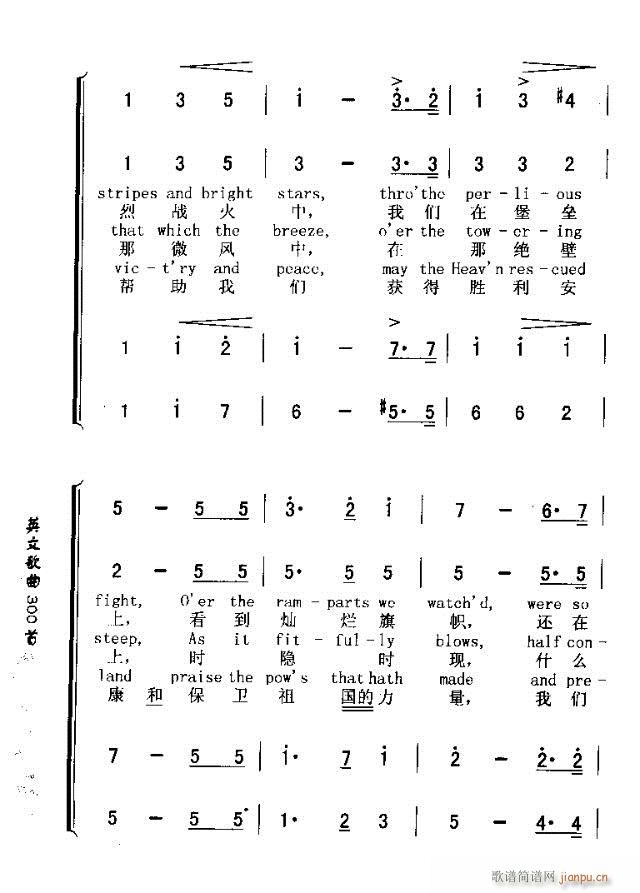 1 3 5 | i – 3· 2 | i 3 #4
1 3 5 | 3 – 3· 3 | 3 3 2
stripes and bright stars, thro'the per-li-ous
烈 战 火 中, 我 们 在 堡 垒
that which the breeze, o'er the tow-ering
那 微 风 中, 在 那 绝 壁
vic-t'ry and peace, may the Heav'n res-cued
帮 助 我 们 获 得 胜 利 安
1 i 2 | i – 7· 7 | i i i
1 i 7 | 6 – #5· 5 | 6 6 2
5 – 5 5 | 3· 2 i | 7 – 6· 7
2 – 5 5 | 5· 5 5 | 5 – 5· 5
fight, O'er the ram-parts we watch'd, were so
上, 看 到 灿 烂 旗 帜, 还 在
steep, As it fit-ful-ly blows, half con-
上, 时 隐 时 现, 什 么
land praise the pow's that hath made and pre-
康 和 保 卫 祖 国 的 力 量, 我 们
7 – 5 5 | i· 7 i | 2 – 2· 2
5 – 5 5 | 1· 2 3 | 5 – 4· 4
英文歌曲300首
歌谱简谱网
jianpu.cn